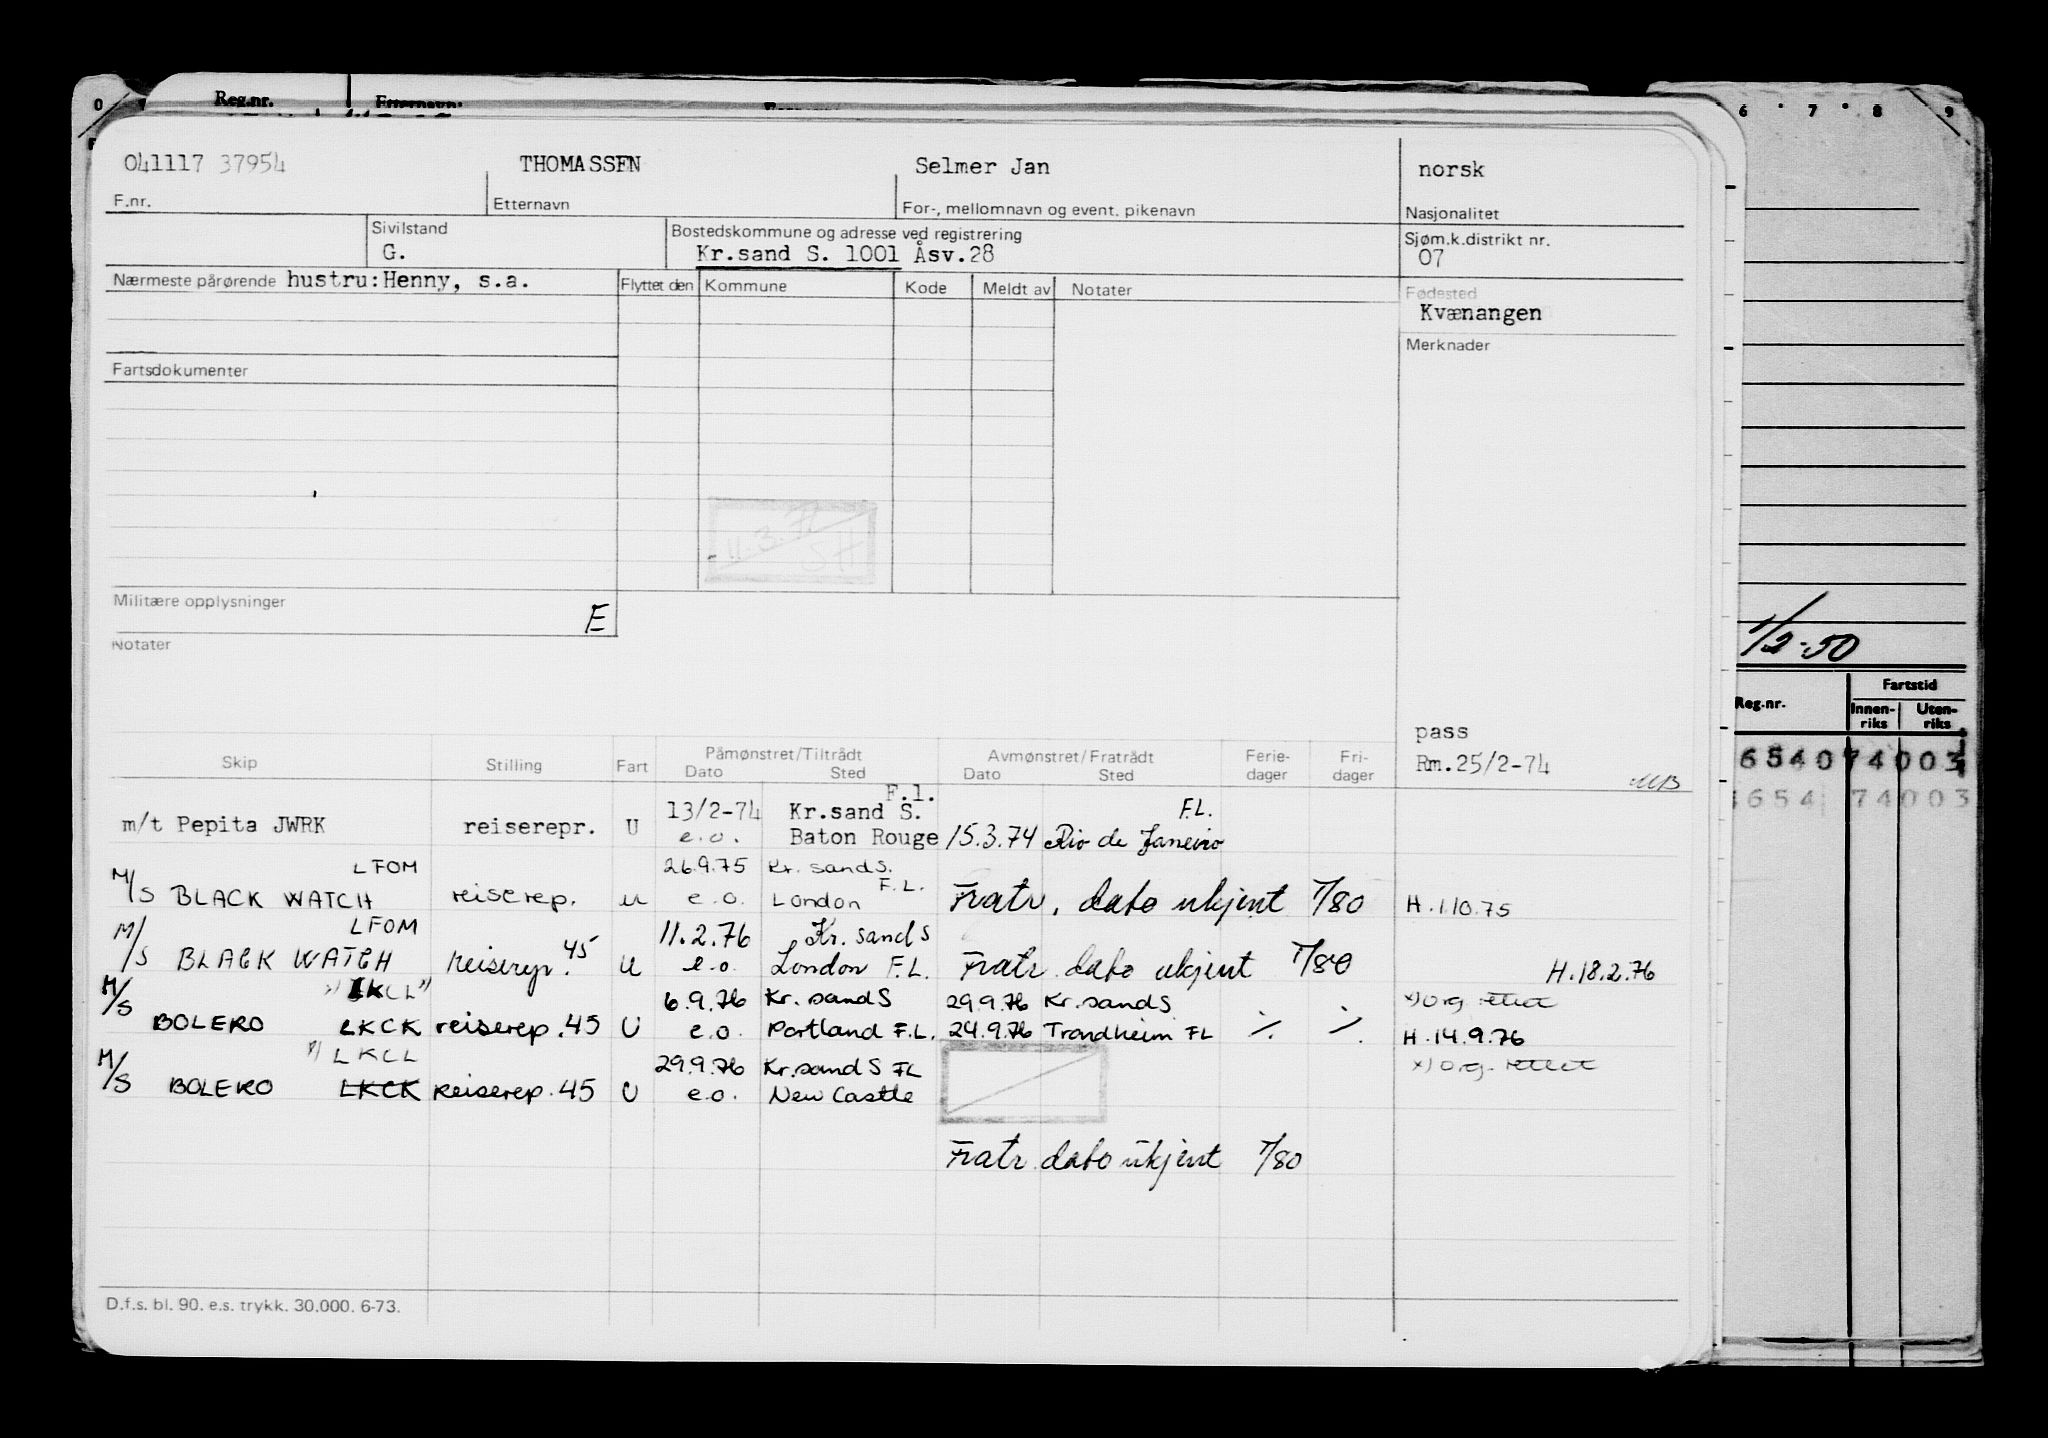 Reg.nr. Etternavn:
0 6 7 8 9
041117 37954 THOMASSEN Selmer Jan norsk
F.nr. Etternavn For-, mellomnavn og event. pikenavn Nasjonalitet
Sivilstand Bostedskommune og adresse ved registrering Sjøm.k.distrikt nr.
G. Kr.sand S. 1001 Åsv.28 07
Nærmeste pårørende hustru:Henny, s.a. Flyttet den Kommune Kode Meldt av Notater Fødested
Kvænangen
Merknader
Fartsdokumenter
11.3.76
SH
Militære opplysninger E
Notater
1/2-50
Reg.nr. Fartstid
Innen-riks Uten-riks
pass
Skip Stilling Fart Påmønstret/Tiltrådt Avmønstret/Fratrådt Ferie-dager Fri-dager
Dato Sted Dato Sted Rm.25/2-74 MB
654074003
654 74003
F.l.
13/2-74 Kr.sand S. F.L.
m/t Pepita JWRK reiserepr. U e.o. Baton Rouge 15.3.74 Rio de Janeiro
LFOM 26.9.75 Kr. sand S.
F.L.
M/S BLACK WATCH reiserep. u e.o. London Fratr. dato ukjent 7/80 H.1.10.75
LFOM 11.2.76 Kr. sand S
M/S BLACK WATCH reiserep. 45 u e.o. London F.L. Fratr. dato ukjent 7/80 H.18.2.76
x) LKCL 6.9.76 Kr. sand S 29.9.76 Kr. sand S x) org. rettet
M/S BOLERO LKCK reiserep. 45 U e.o. Portland F.L. 24.9.76 Trondheim FL ./. ./. H.14.9.76
x) LKCL 29.9.76 Kr. sand S FL x) org. rettet
M/S BOLERO LKCK reiserep. 45 U e.o. New Castle
Fratr. dato ukjent 7/80
D.f.s. bl. 90. e.s. trykk. 30.000. 6-73.